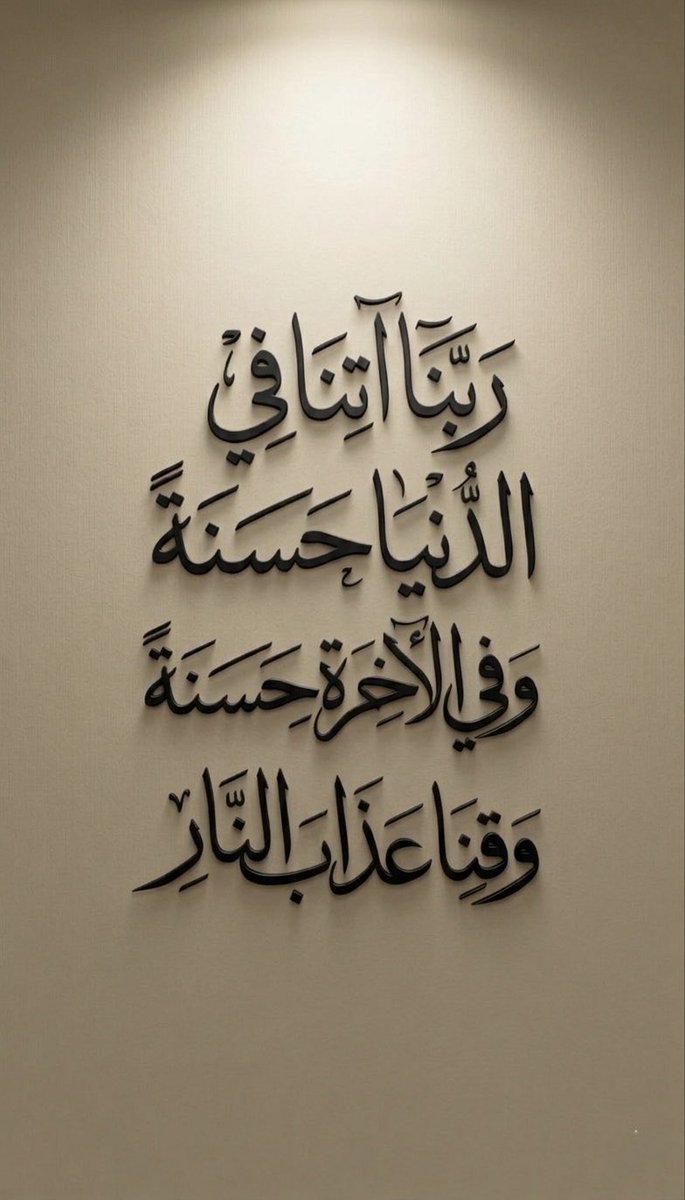 رَبَّنَآ آتِنَا فِيْ
الدُّنْيَا حَسَنَةً
وَفِي الْآخِرَةِ حَسَنَةً
وَقِنَا عَذَابَ النَّارِ